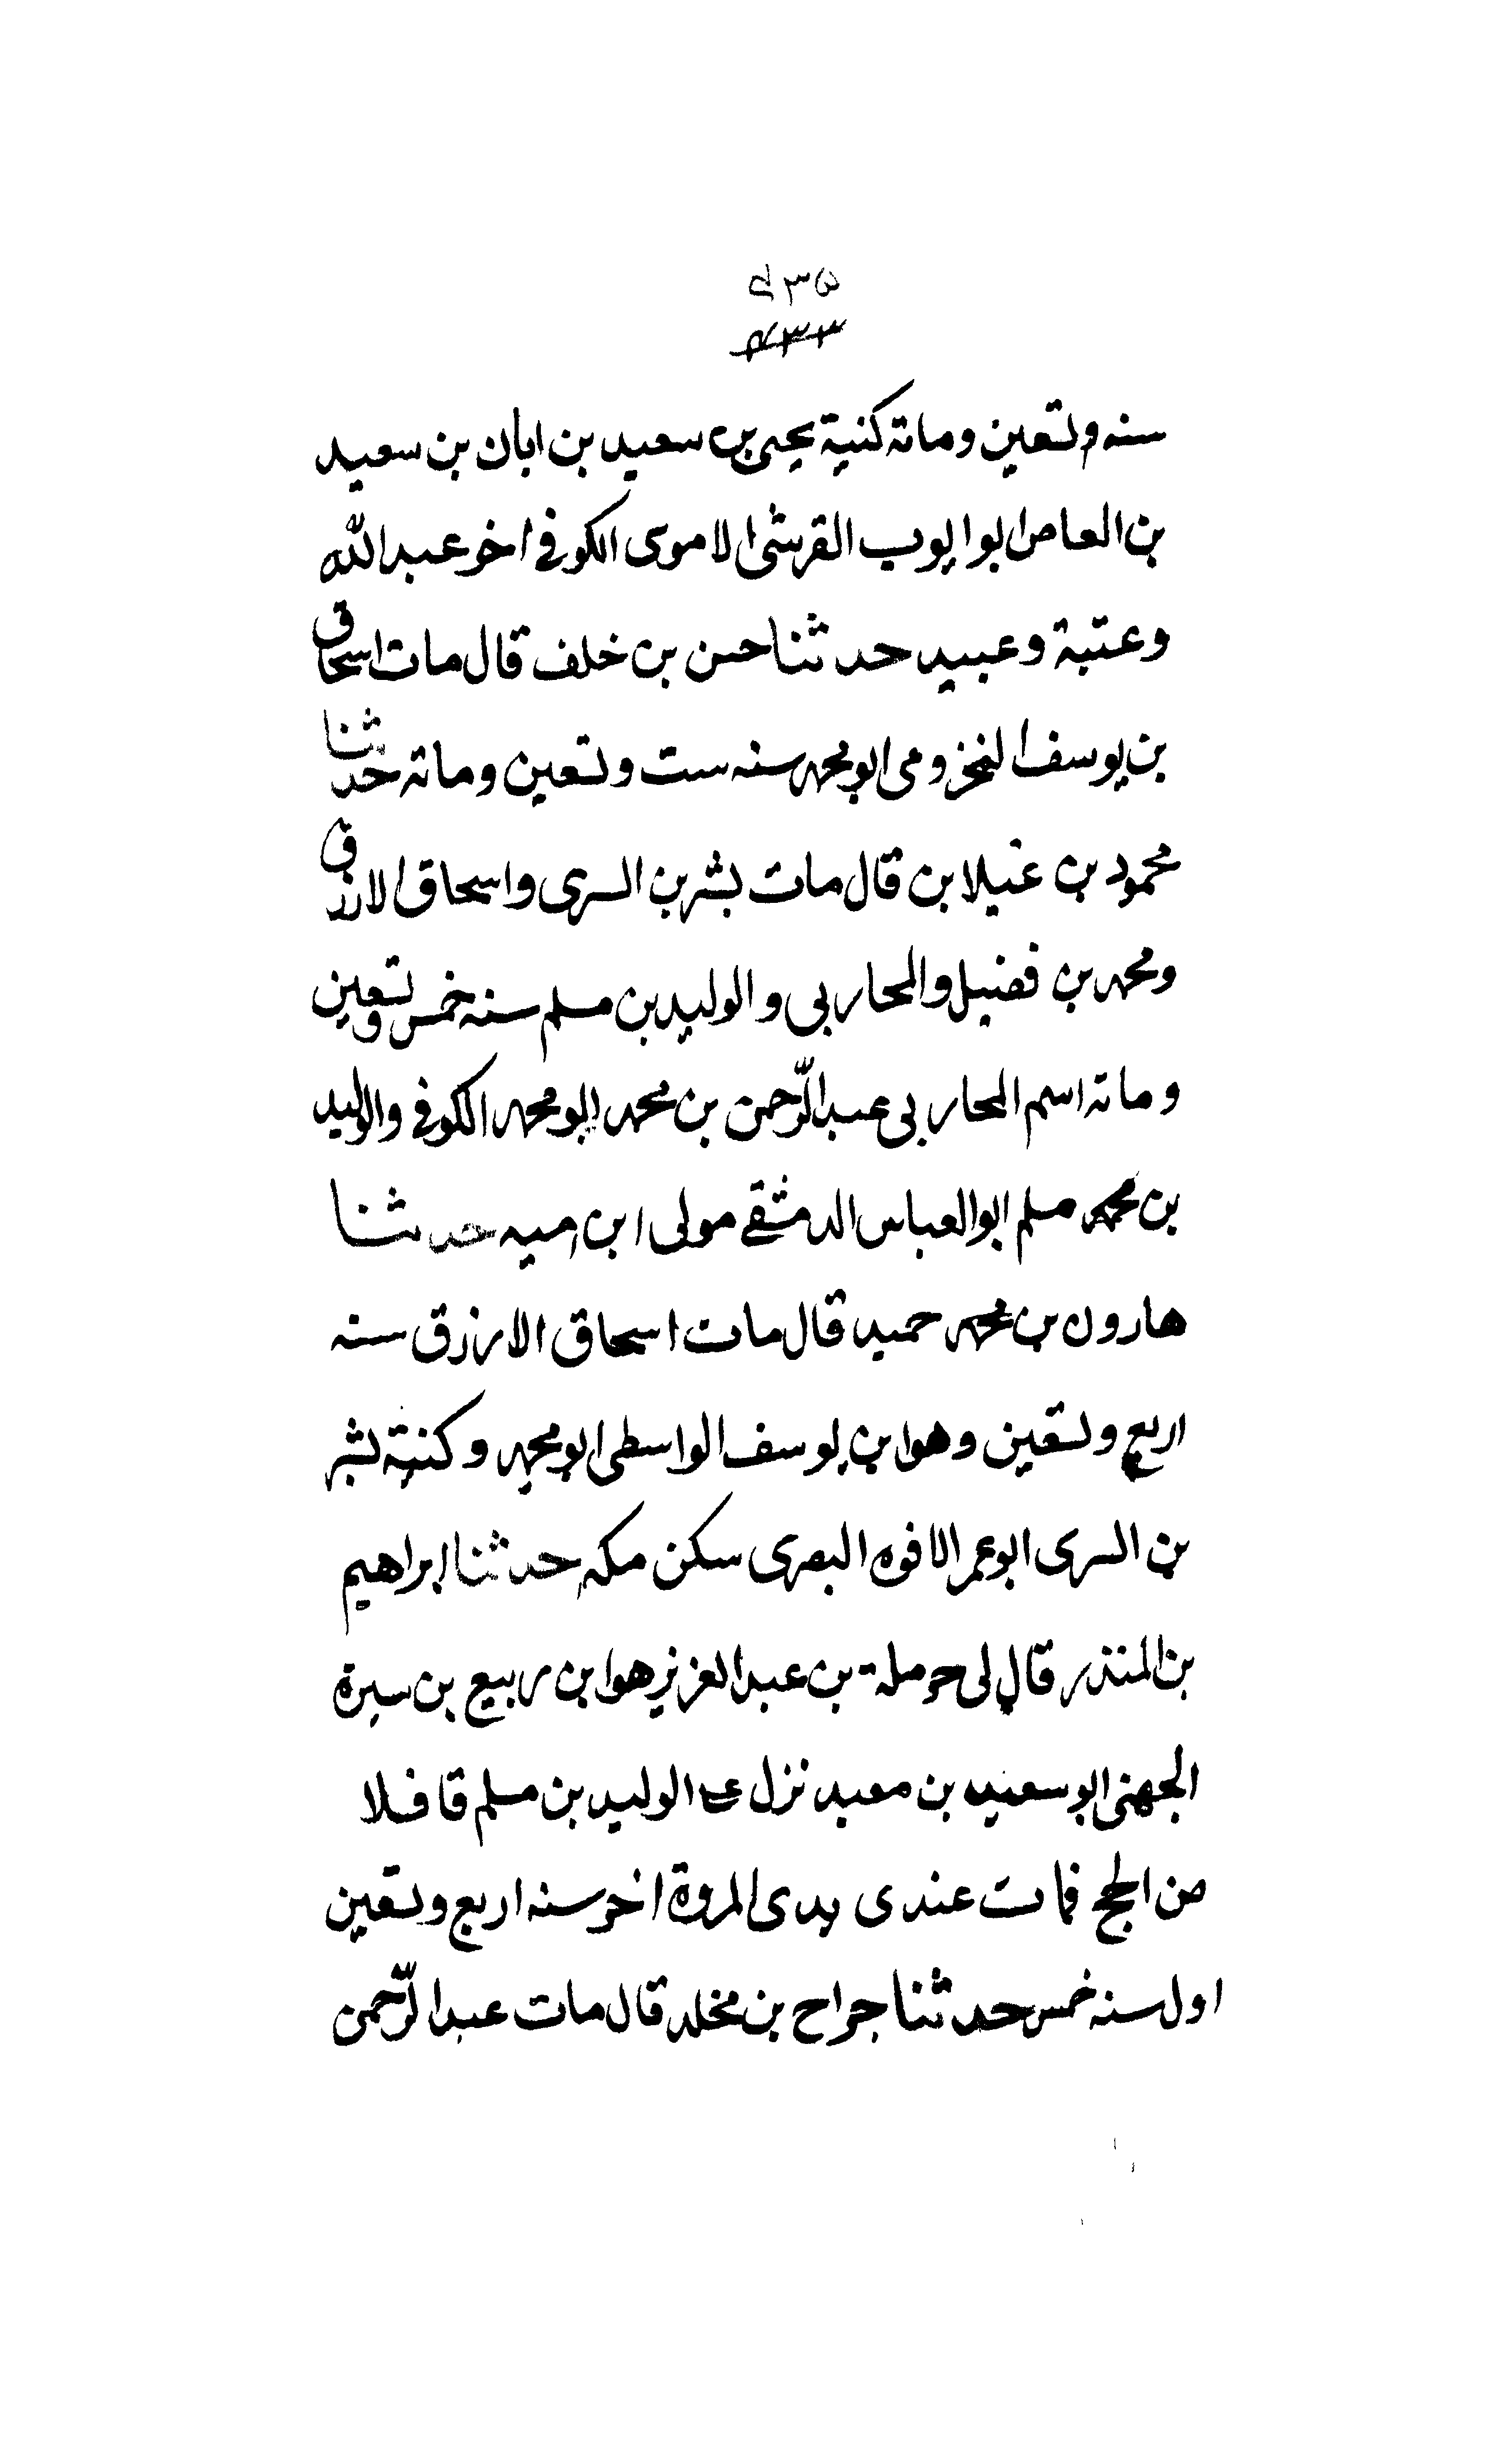 ۵۳۵
۴۳۳
سنه وتسعين ومائة كنية يحيى بن سعيد بن ابان بن سعيد
بن العاص ابو ايوب القرشى الاموى الكوفى اخو عبد الله
وعتبة وعبيد حدثنا حسن بن خلف قال مات اسحاق
بن يوسف المخزومى ابو محمد سنه ست وتسعين ومائة حدثنا
محمود بن غيلان قال مات بشر بن السرى واسحاق الازرق
ومحمد بن فضيل والمحاربى والوليد بن مسلم سنه خمس وتسعين
ومائة اسم المحاربى عبد الرّحمن بن محمد ابو محمد الكوفى والوليد
بن محمد مسلم ابو العباس الدمشقے مولى ابن اميه حدثنا
هارون بن محمد حميد قال مات اسحاق الازرق سنه
اربع وتسعين وهو ابن يوسف الواسطى ابو محمد وكنية بشر
بن السرى ابو عمر الافوه البصرى سكن مكه حدثنا ابراهيم
بن المنذر قال لى حرملة بن عبد العزيز هو ابن ربيع بن سبرة
الجهنى ابو سعيد بن معبد نزل على الوليد بن مسلم قافلا
من الحج فمات عندى بدى المروة اخر سنه اربع وتسعين
اول سنه خمس حدثنا جراح بن مخلد قال مات عبد الرّحمن